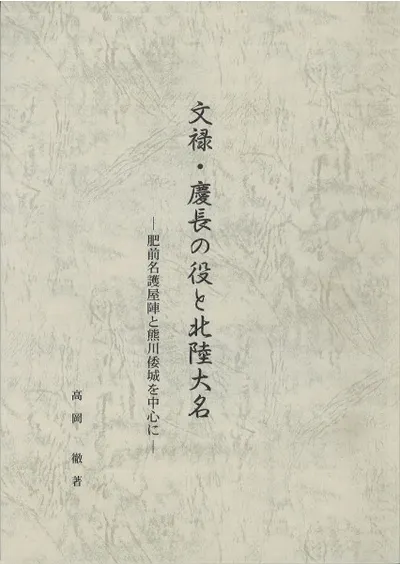 文禄・慶長の役と北陸大名
―肥前名護屋陣と熊川倭城を中心に―
高岡 徹 著